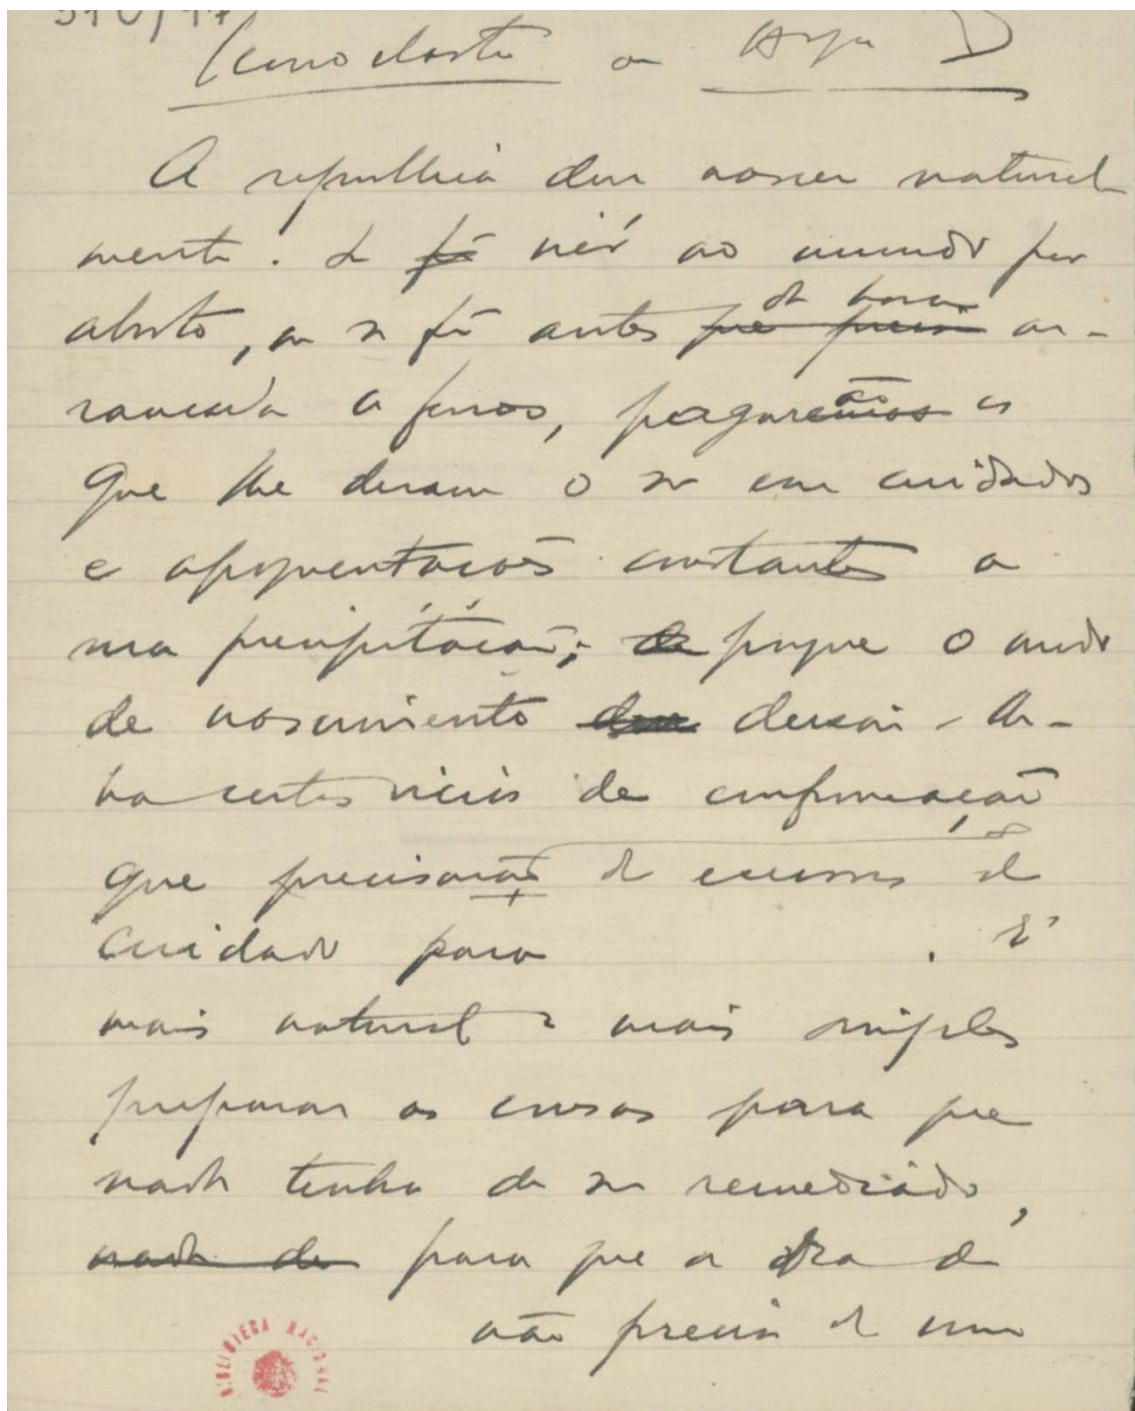 Iconoclasta
A republica deve nascer natural-
mente. Se fõr vier ao mundo por
aborto, ou se fõr antes que precisa da hora ar-
rancada a ferros, pagaremos ão os
que lhe deram o ser em cuidados
e apoquentações constantes a
sua precipitação; porque o modo
de nascimento
certos vicios de conformação
que precisarão de de
cuidado para . E'
mais natural e mais simples
preparar as cousas para que
nada tenha de ser remediado,
nada de para que a
não precise de um
BIBLIOTECA NACIONAL